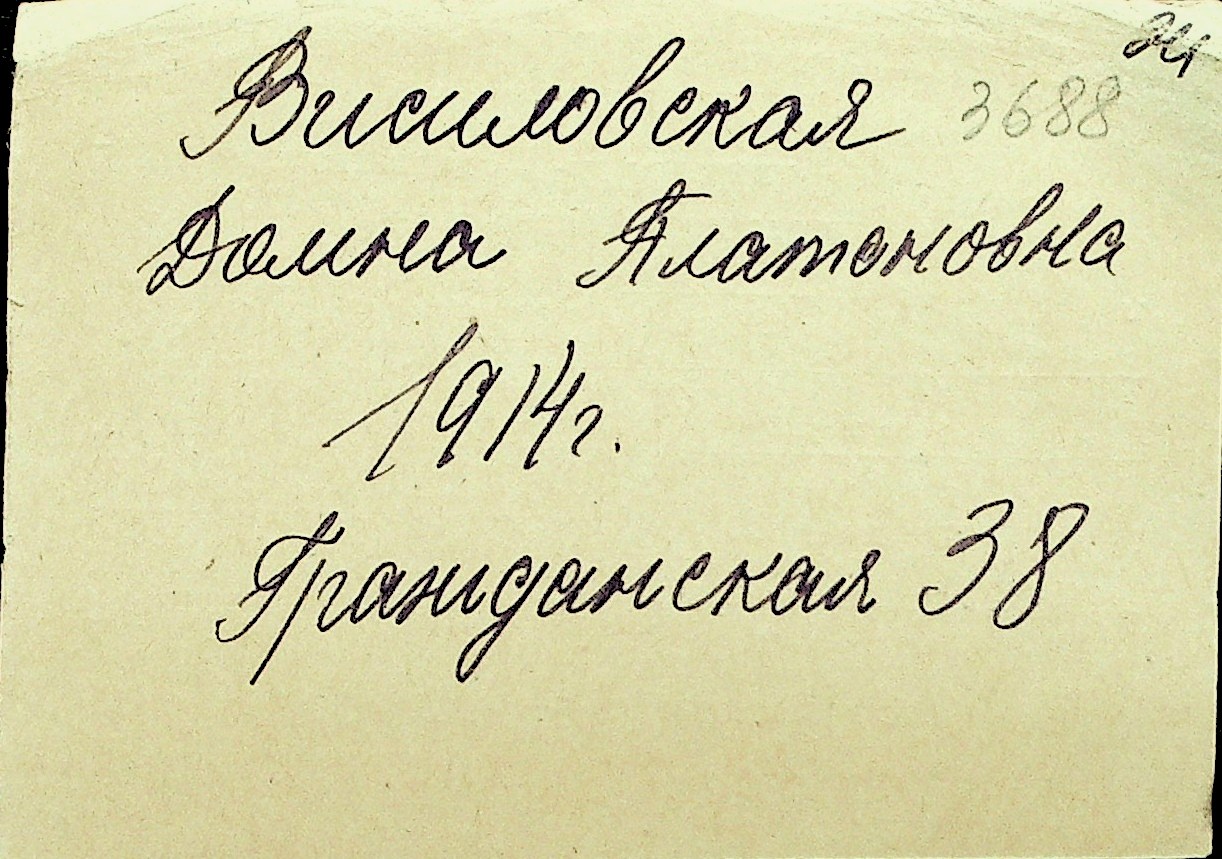 Висиловская 3688
Домна Платоновна
1914г.
Гражданская 38